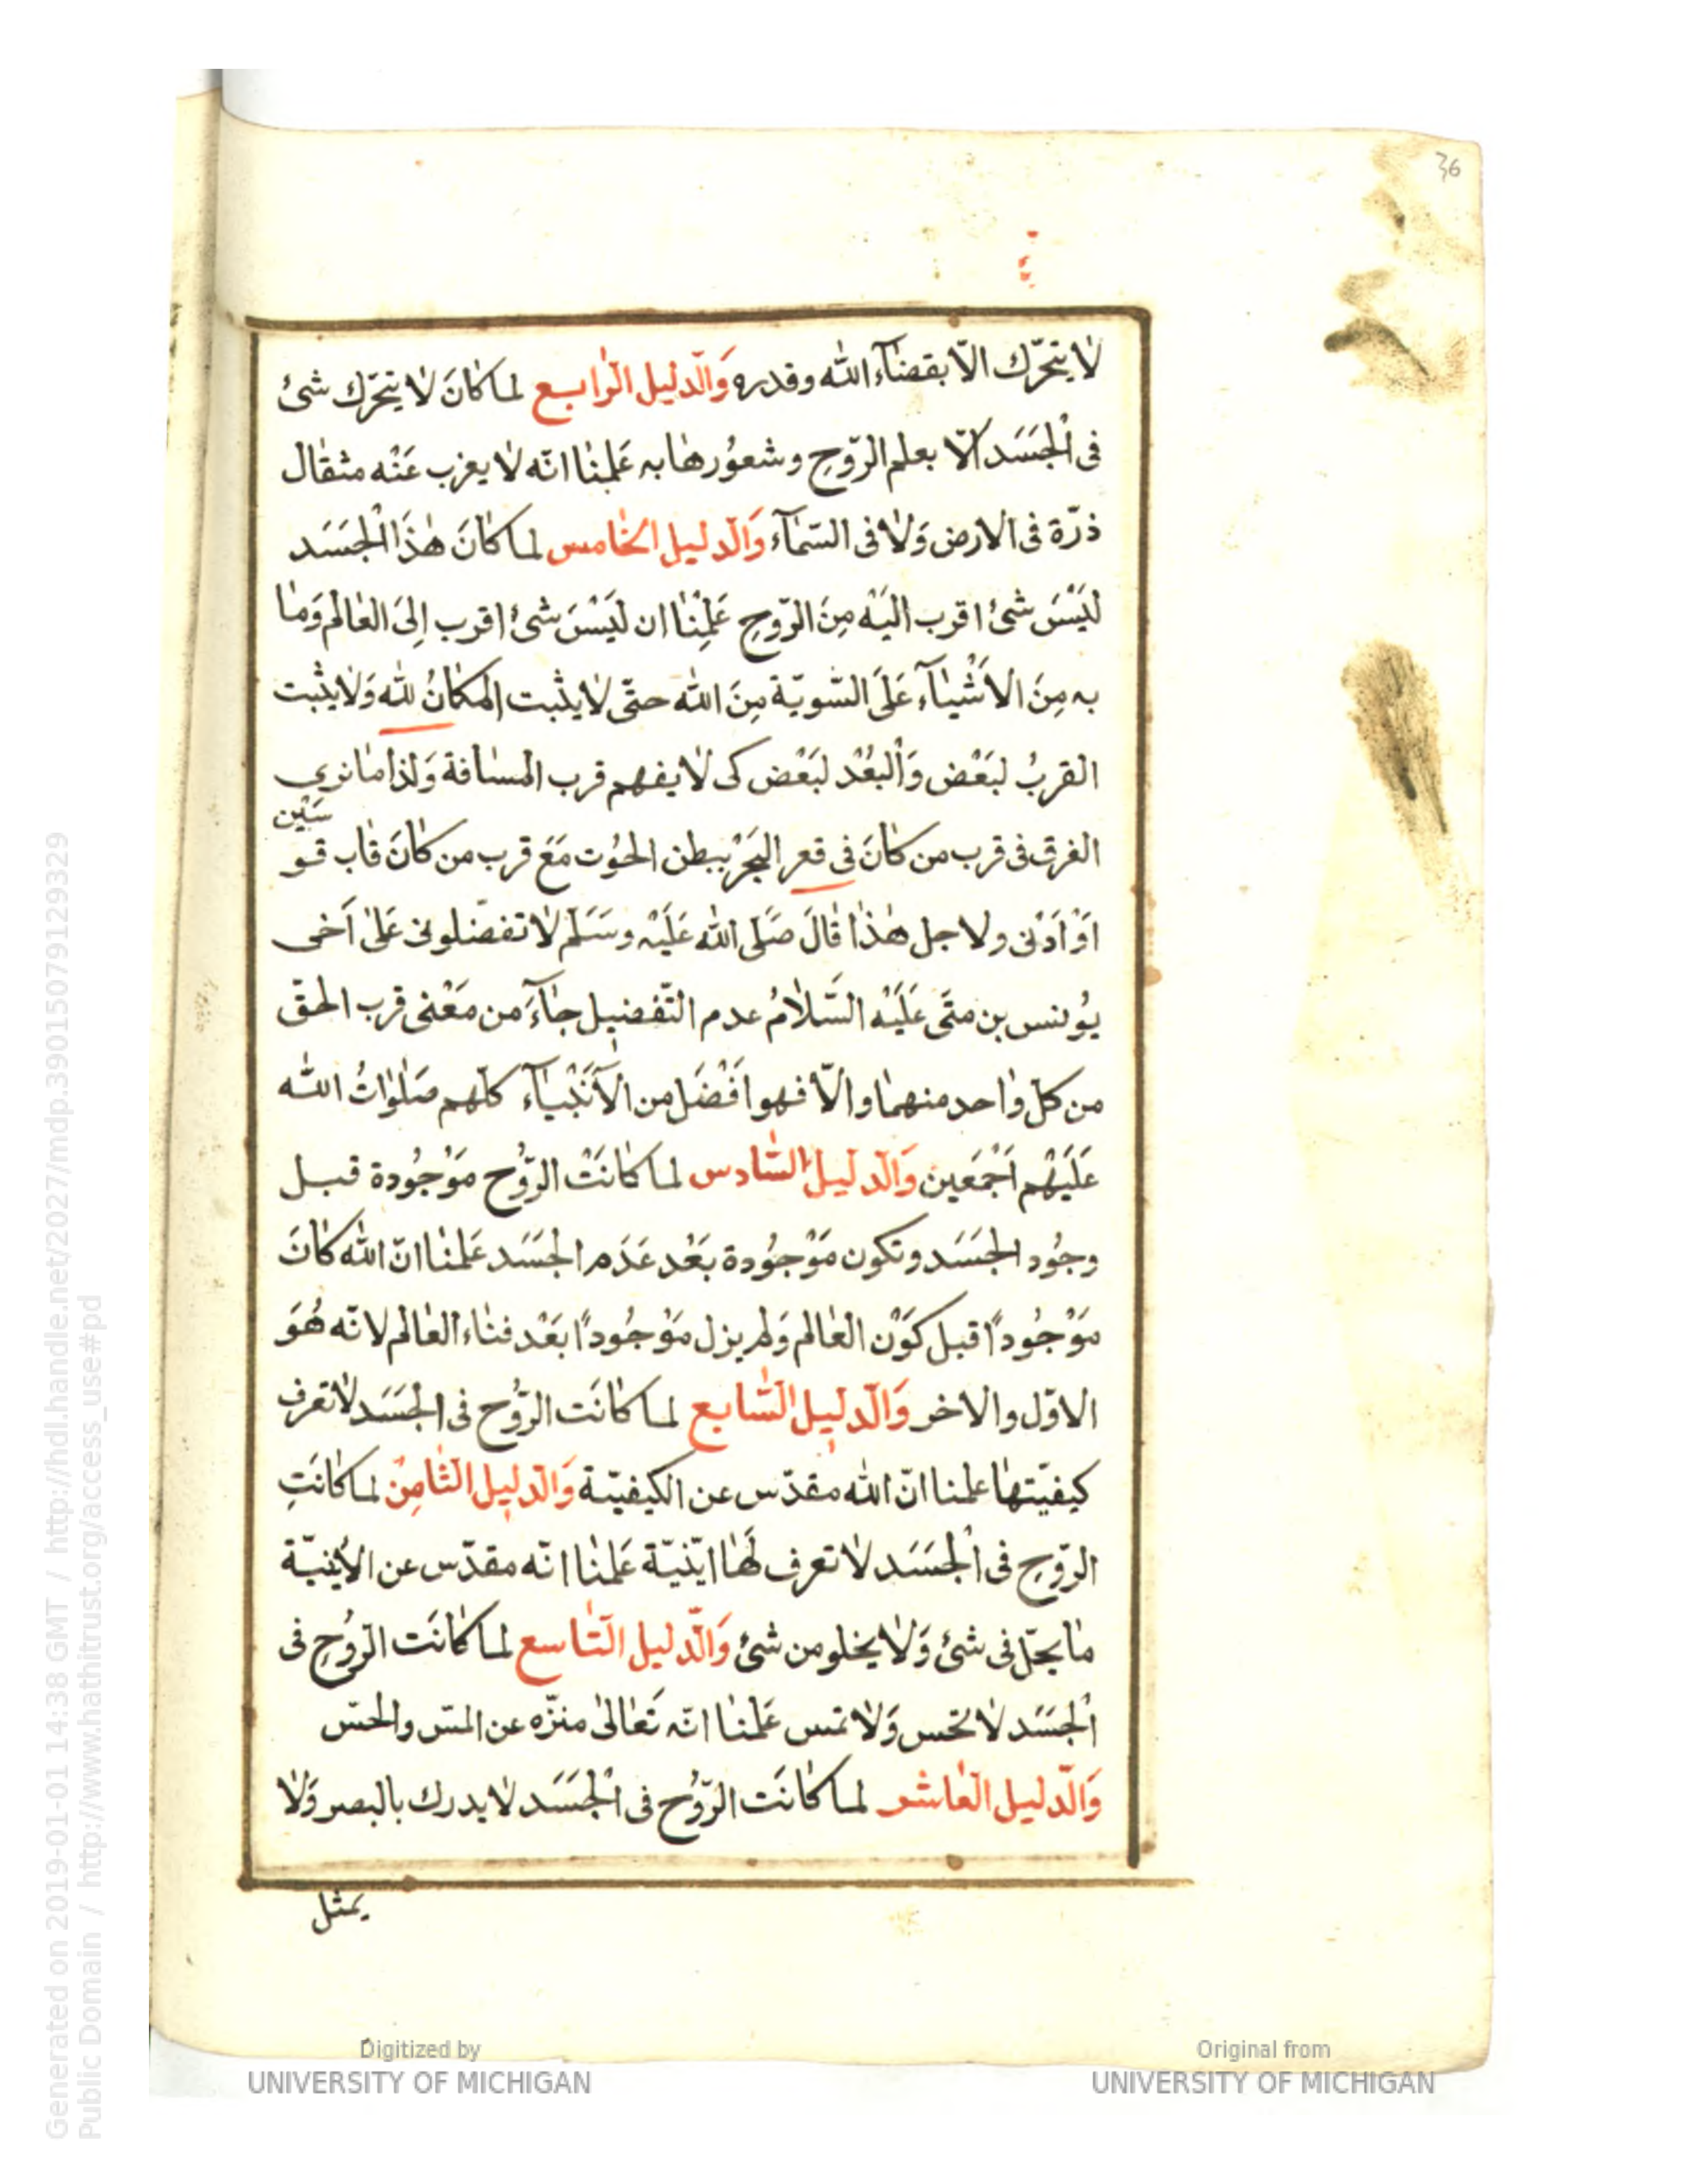 36
لا يتحرّك الّا بقضاۤء الله وقدره وَالدّليل الرّابع لما كانَ لا يتحرّك شئ
فى الْجَسَد الّا بعلم الرّوحِ وشعوُرها به عَلِمْنا انّه لا يعزب عَنْه مثقال
ذرّة فى الارض وَلا فى السّمآء وَالدّليل الخامس لما كانَ هٰذَا الْجَسَد
لَيْسَ شئ اقرب الَيْه مِنَ الرّوحِ عَلِمْنا ان لَيْسَ شئ اقرب اِلىَ العالم وَما
به مِنَ الاَشْياۤء عَلَى السّويّة مِنَ الله حتّى لا يثبت المكانُ لله وَلا يثبت
القربُ لبَعْض وَالْبعُدْ لبَعْض كى لا يفهم قرب المسافة وَلذا ما نرى
الفرق فى قرب من كانَ فى قعر البَحَرْ ببطن الحوُت مَعَ قرب من كانَ قاب قو
سَيْن
اَوْ اَدْنى ولاجل هٰذا قالَ صَلّى الله عَلَيْه وسَلّم لا تفضّلونى عَلىٰ اَخى
يوُنس بن متَى عَلَيْه السّلامُ عدم التّفضيل جاۤءَ من مَعْنى قرب الحقّ
من كلّ واحد منهما والّا فهو اَفْضَل من الاَنْبْياۤء كلّهم صَلَواتُ الله
عَلَيْهم اَجْمَعين وَالدّليل السّادس لما كانَتْ الرّوُح مَوْجُودة قبل
وجوُد الجَسَد وتكون مَوْجوُدة بَعْد عَدَم الجَسَد عَلمنا انّ الله كانَ
مَوْجوُدًا قبل كوَنْ العالم وَلم يزل مَوْجوُدًا بَعْد فناء العالم لانّه هُوَ
الاوّل والاخر وَالدّليل السّابع لما كانَت الرّوُح فى الجَسَد لا تعرف
كيفيّتها علمنا انّ الله مقدّس عن الكيفيّة وَالدّليل الثّامِنْ لما كانَتِ
الرّوحِ فى الْجَسَد لا تعرف لَها اَيْنيّة عَلمْنا انّه مقدّس عن الاَينيّة
ما يحلّ فى شئ وَلا يخلو من شئ وَالدّليل التّاسع لما كانَت الرّوُحِ فى
الْجَسَد لا تحس وَلا تمس عَلمْنا انّه تَعالىٰ منزّه عن المسّ والحسّ
وَالدّليل العاشر لما كانَت الرّوُح فى الْجَسَد لا يدرك بالبصر وَلا
يمثل
Generated on 2019-01-01 14:38 GMT / http://hdl.handle.net/2027/mdp.39015079129329
Public Domain / http://www.hathitrust.org/access_use#pd
Digitized by
UNIVERSITY OF MICHIGAN
Original from
UNIVERSITY OF MICHIGAN